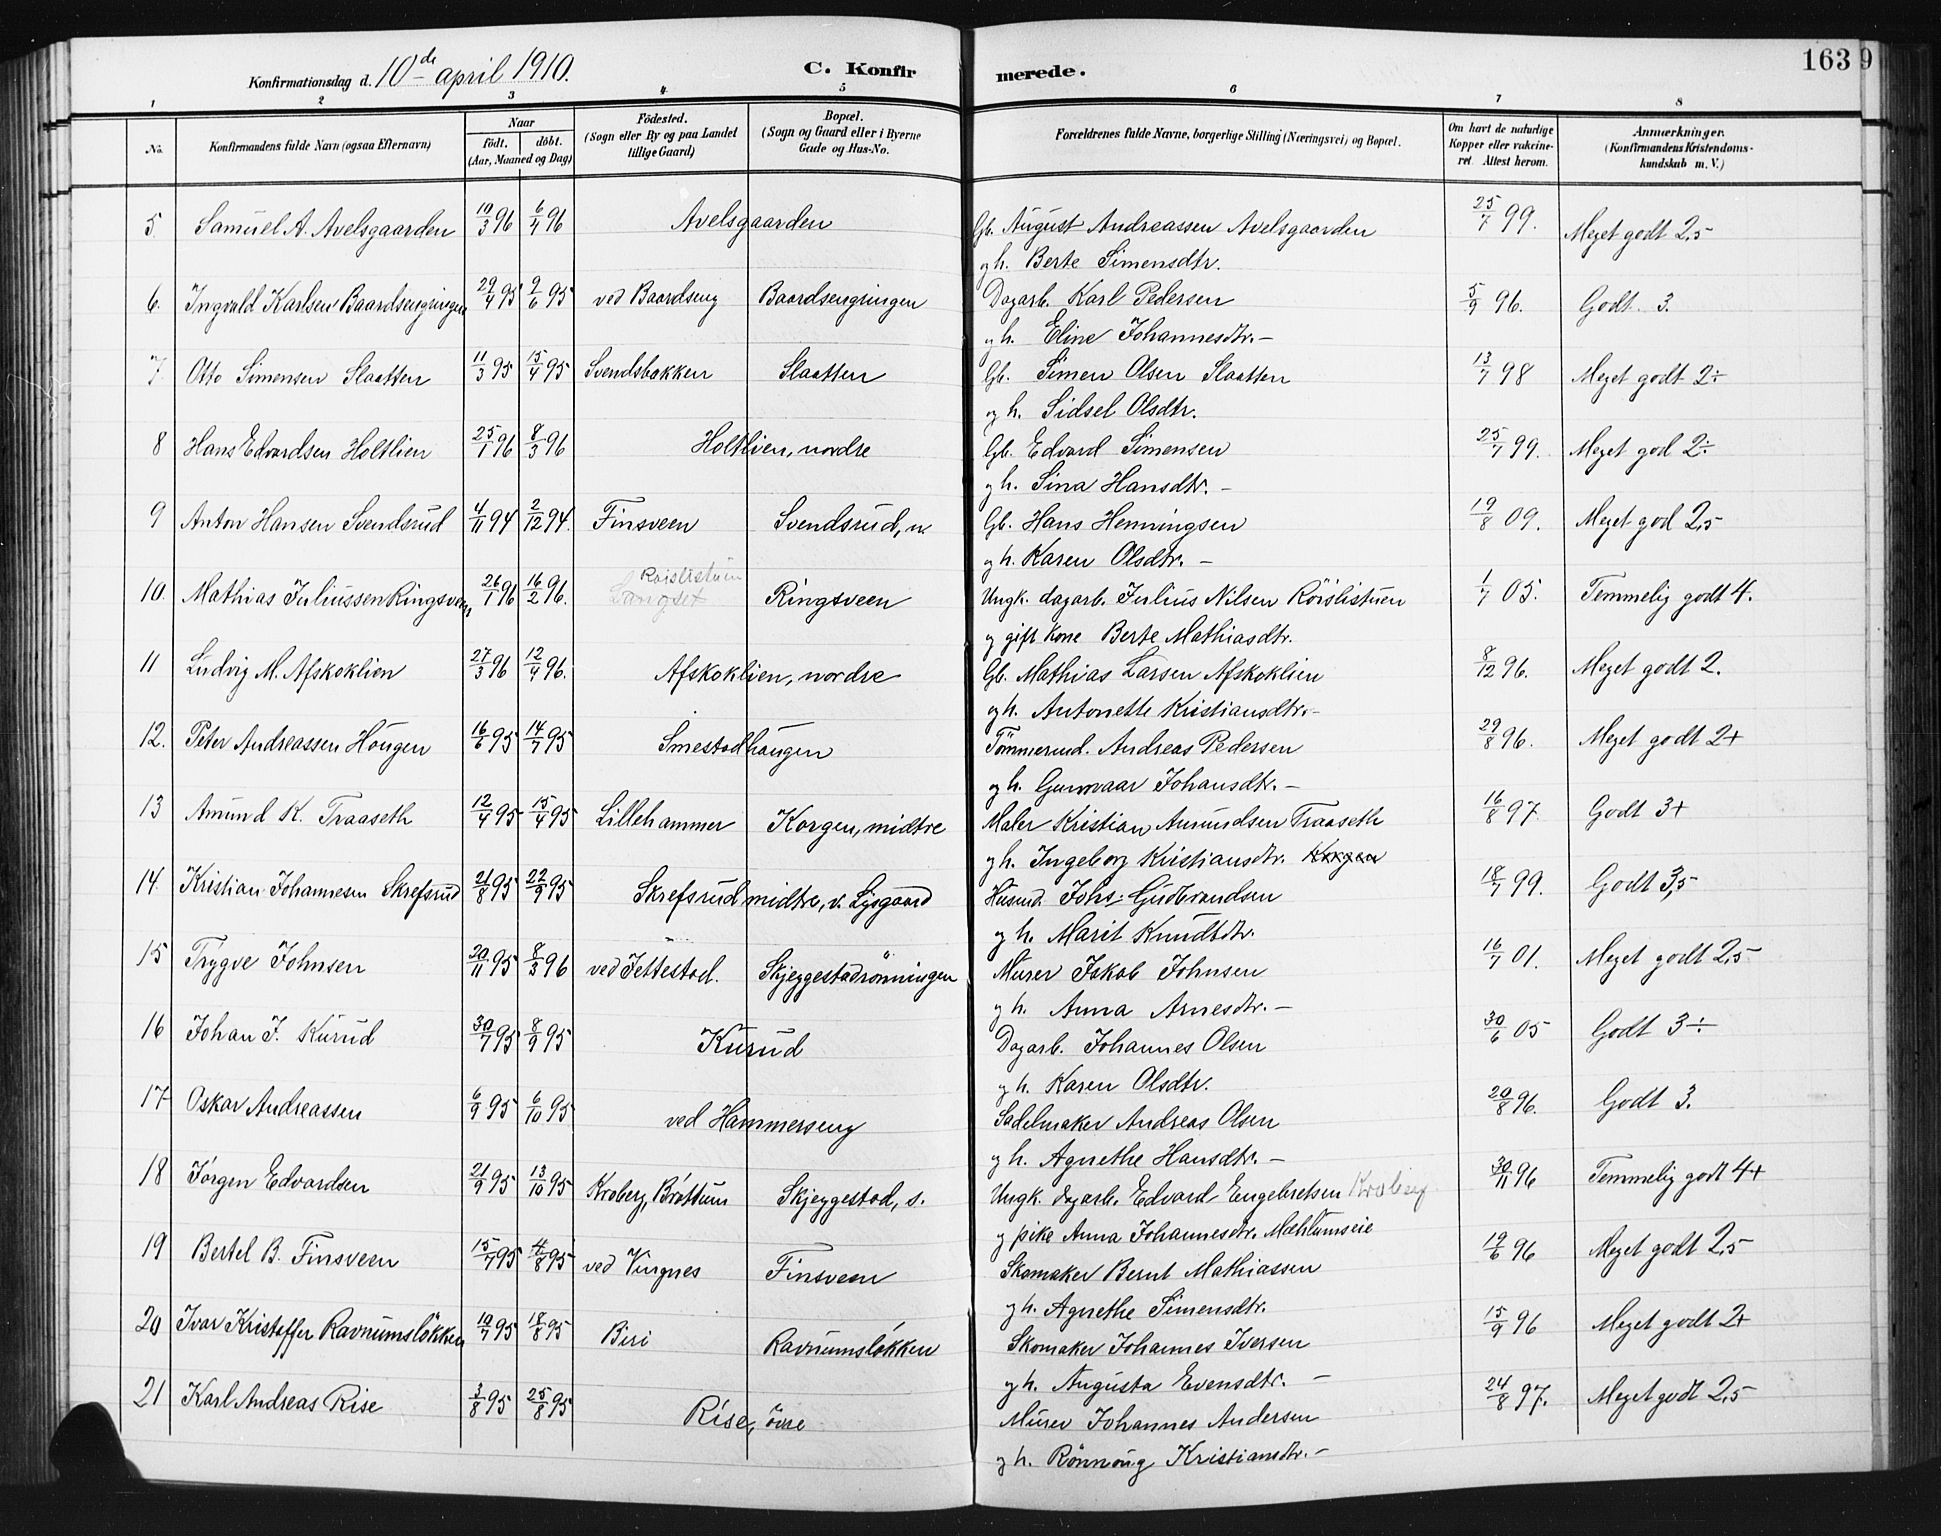 163 9
Konfirmationsdag d. 10de april 1910. C. Konfir merede.
1 2 3 4 5 6 7 8
No. Konfirmandens fulde Navn (ogsaa Efternavn) Naar födt. döbt. (Aar, Maaned og Dag) Födested. (Sogn eller By og paa Landet tillige Gaard) Bopæl. (Sogn og Gaard eller i Byerne Gade og Hus-No. Forældrenes fulde Navne, borgerlige Stilling (Næringsvei) og Bopæl. Om havt de naturlige Kopper eller vakcineret. Attest herom. Anmærkninger. (Konfirmandens Kristendomskundskab m. V.)
5 Samuel A. Avelsgaarden 10/3 96 6/4 96 Avelsgaarden Gb. August Andreassen Avelsgaarden 25/7 99. Meget godt 2,5
og h. Berte Simensdtr.
6. Ingvald Karlsen Baardsengringen 29/4 95 9/6 95 ved Baardseng Baardsengringen Dagarb. Karl Pedersen 5/9 96. Godt 3.
og h. Eline Johannesdtr.-
7. Otto Simensen Slaatten 11/3 95 15/4 95 Svendsbakken Slaatten Gb. Simen Olsen Slaatten 13/7 98 Meget godt 2÷
og h. Sidsel Olsdtr.
8 Hans Edvardsen Holtlien 25/1 96 8/3 96 Holtlien, nordre Gb. Edvard Simensen 25/7 99. Meget god 2÷
og h. Sina Hansdtr. -
9 Anton Hansen Svendsrud 4/11 94 2/12 94. Finsveen Svendsrud, n. Gb. Hans Henningsen 19/8 09. Meget god 2,5
og h. Karen Olsdtr. -
10. Mathias Juliussen Ringsveen 26/1 96 16/2 96. Langset Röislistuen Ringsveen Ungk. dagarb. Julius Nilsen Röislistuen 1/7 05. Temmelig godt 4.
og gift Kone Berte Mathiasdtr.
11 Ludvig M. Afskoklien 27/3 96 12/4 96. Afskoklien, nordre Gb. Mathias Larsen Afskoklien 8/12 96. Meget godt 2.
og h. Antonette Kristiansdtr.-
12. Peter Andreassen Haugen 16/6 95 14/7 95 Smestadhaugen Tömmermd. Andreas Pedersen 29/8 96. Meget godt 2+
og h. Gunvaar Johansdtr. -
13 Amund K. Traaseth 12/4 95 15/4 95 Lillehammer Korgen, midtre Maler Kristian Amundsen Traaseth 16/8 97. Godt 3+
og h. Ingeborg Kristiansdtr. Korgen
14. Kristian Johannesen Skrefsrud 21/8 95 22/9 95 Skrefsrud midtre, v. Lysgaard Husmd. Johs. Gudbrandsen 18/7 99. Godt 3,5
og h. Marit Knudtdtr.
15 Trygve Johnsen 20/11 95 8/3 96 ved Jettestad. Skjeggestadrönningen Murer Jakob Johnsen 16/7 01. Meget godt 2,5
og h. Anna Arnesdtr. -
16 Johan J. Kurud 30/7 95 8/9 95 Kurud Dagarb. Johannes Olsen 30/6 05 Godt 3÷
og h. Karen Olsdtr.
17 Oskar Andreassen 6/9 95 6/10 95 ved Hammerseng Sadelmaker Andreas Olsen 20/8 96. Godt 3.
og h. Agnethe Hansdtr. -
18 Jörgen Edvardsen 21/9 95 13/10 95 Kroberg, Bröttum Skjeggestad, s. Ungk. dagarb. Edvard Engebretsen 30/11 96 Temmelig godt 4+
og pike Anna Johannesdtr. Mæhlumseie
19 Bertel B. Finsveen 15/7 95 4/8 95 ved Vingnes Finsveen Skomaker Bernt Mathiassen 19/6 96 Meget godt 2,5
og h. Agnethe Simensdtr.
20 Ivar Kristoffer Ravnumslökken 10/7 95 18/8 95 Biri Ravnumslökken Skomaker Johannes Iversen 15/9 96 Meget godt 2+
og h. Augusta Evensdtr. -
21 Karl Andreas Rise 3/8 95 25/8 95 Rise, övre Murer Johannes Andersen 24/8 97. Meget godt 2,5
og h. Rönnaug Kristiansdtr.-